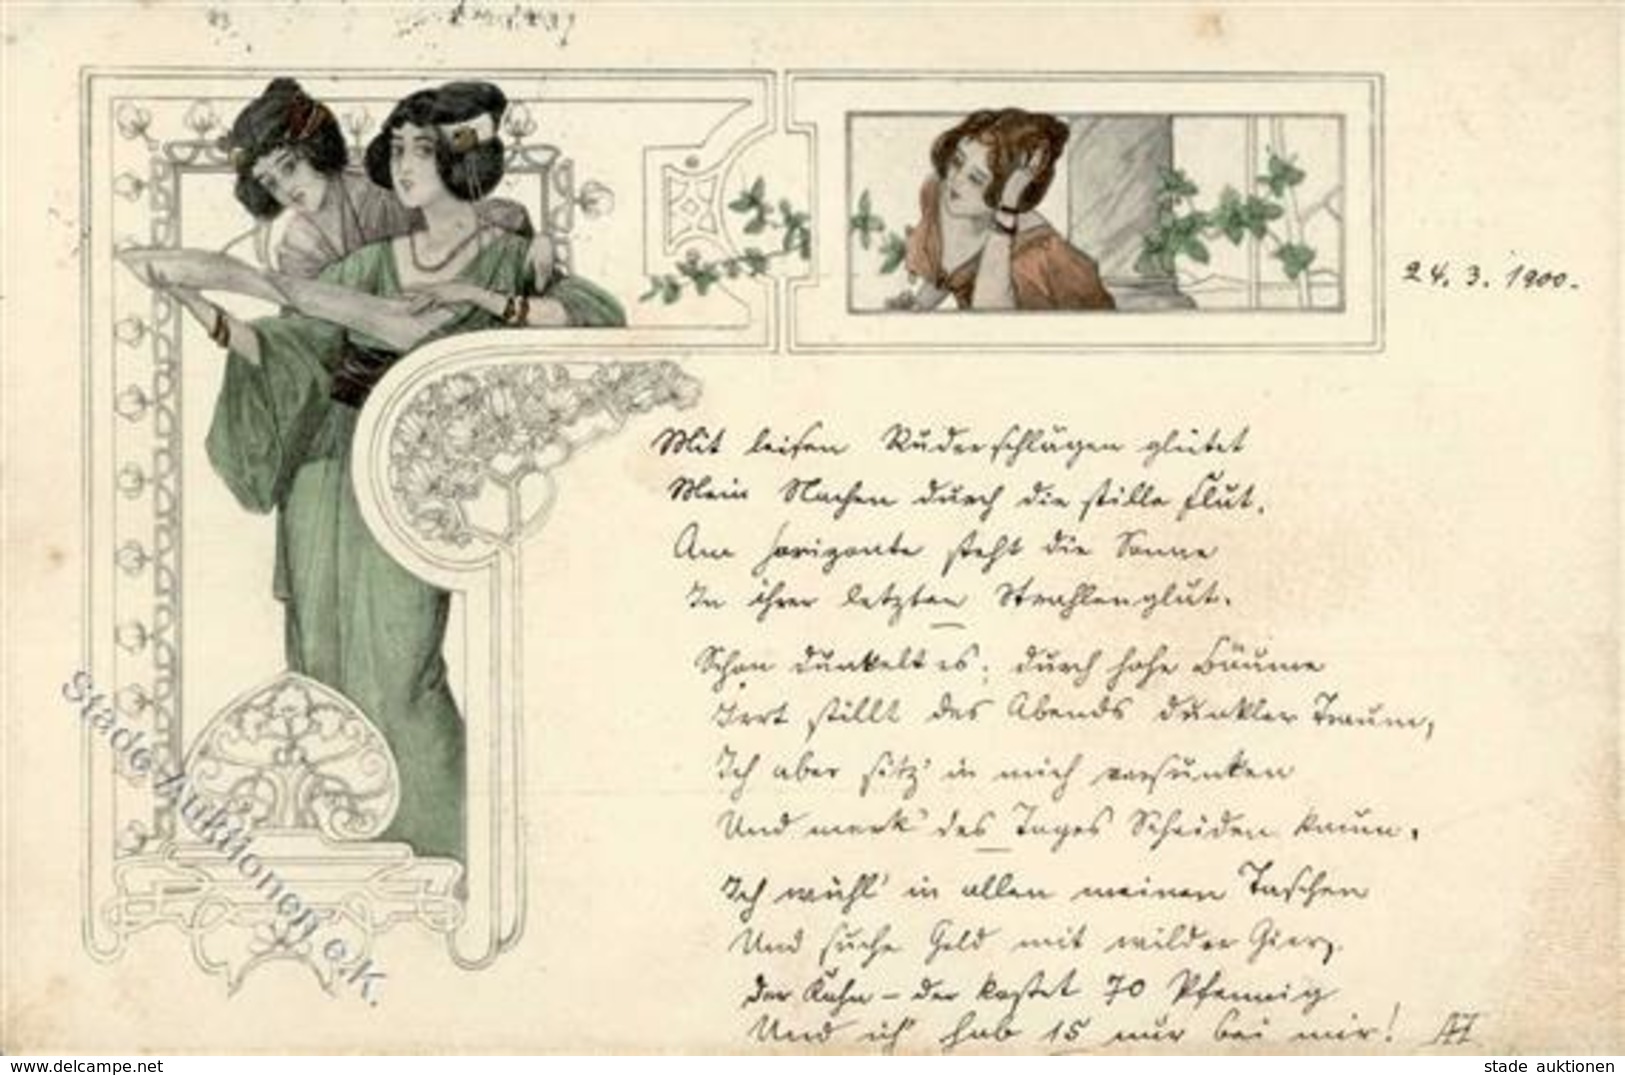 24. 3. 1900.
Mit leisen Ruderschlägen gleitet
Mein Nachen durch die stille Flut,
Am Horizonte steht die Sonne
In ihrer letzten Strahlenglut.
Schon dunkelt es; durch hohe Bäume
stillt des Abends dunkler Traum,
Ich aber sitz' in mich versunken
Und merk' des Tages Scheiden kaum.
Ich wühl' in allen meinen Taschen
Und suche Geld mit wilder Gier,
Der Kahn – der kostet 70 Pfennig
Und ich hab 15 nur bei mir!
Stade Auktionen e.K.
www.ansichtskartenversand.com
stade auktionen